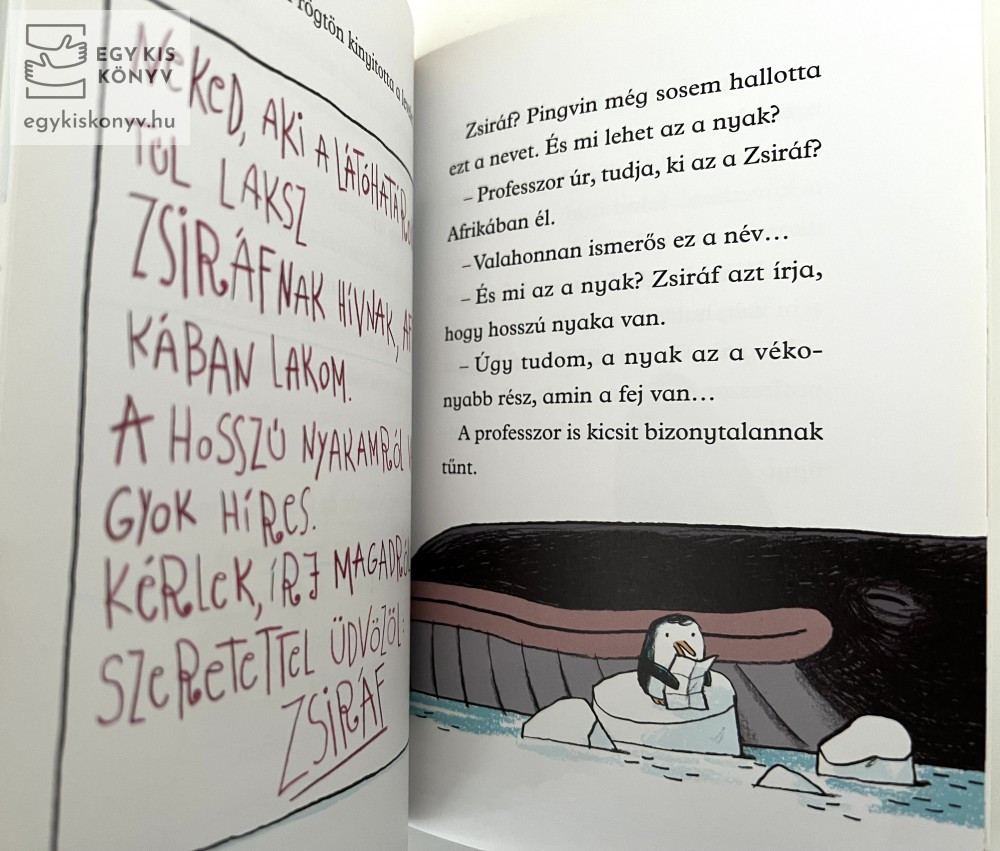 EGY KIS
KÖNYV
egykiskonyv.hu
rögtön kinyitotta a
NEKED, AKI A
TÚL LAKSZ
ZSIRÁFNAK HÍVNAK,
KÁBAN LAKOM.
A HOSSZÚ NYAKAMRÓL
GYOK HÍRES.
KÉRLEK, ÍRJ MAGADRÓL
SZERETETTEL ÜDVÖZÖL:
ZSIRÁF
Zsiráf? Pingvin még sosem hallotta
ezt a nevet. És mi lehet az a nyak?
– Professzor úr, tudja, ki az a Zsiráf?
Afrikában él.
– Valahonnan ismerős ez a név...
– És mi az a nyak? Zsiráf azt írja,
hogy hosszú nyaka van.
– Úgy tudom, a nyak az a véko-
nyabb rész, amin a fej van...
A professzor is kicsit bizonytalannak
tűnt.